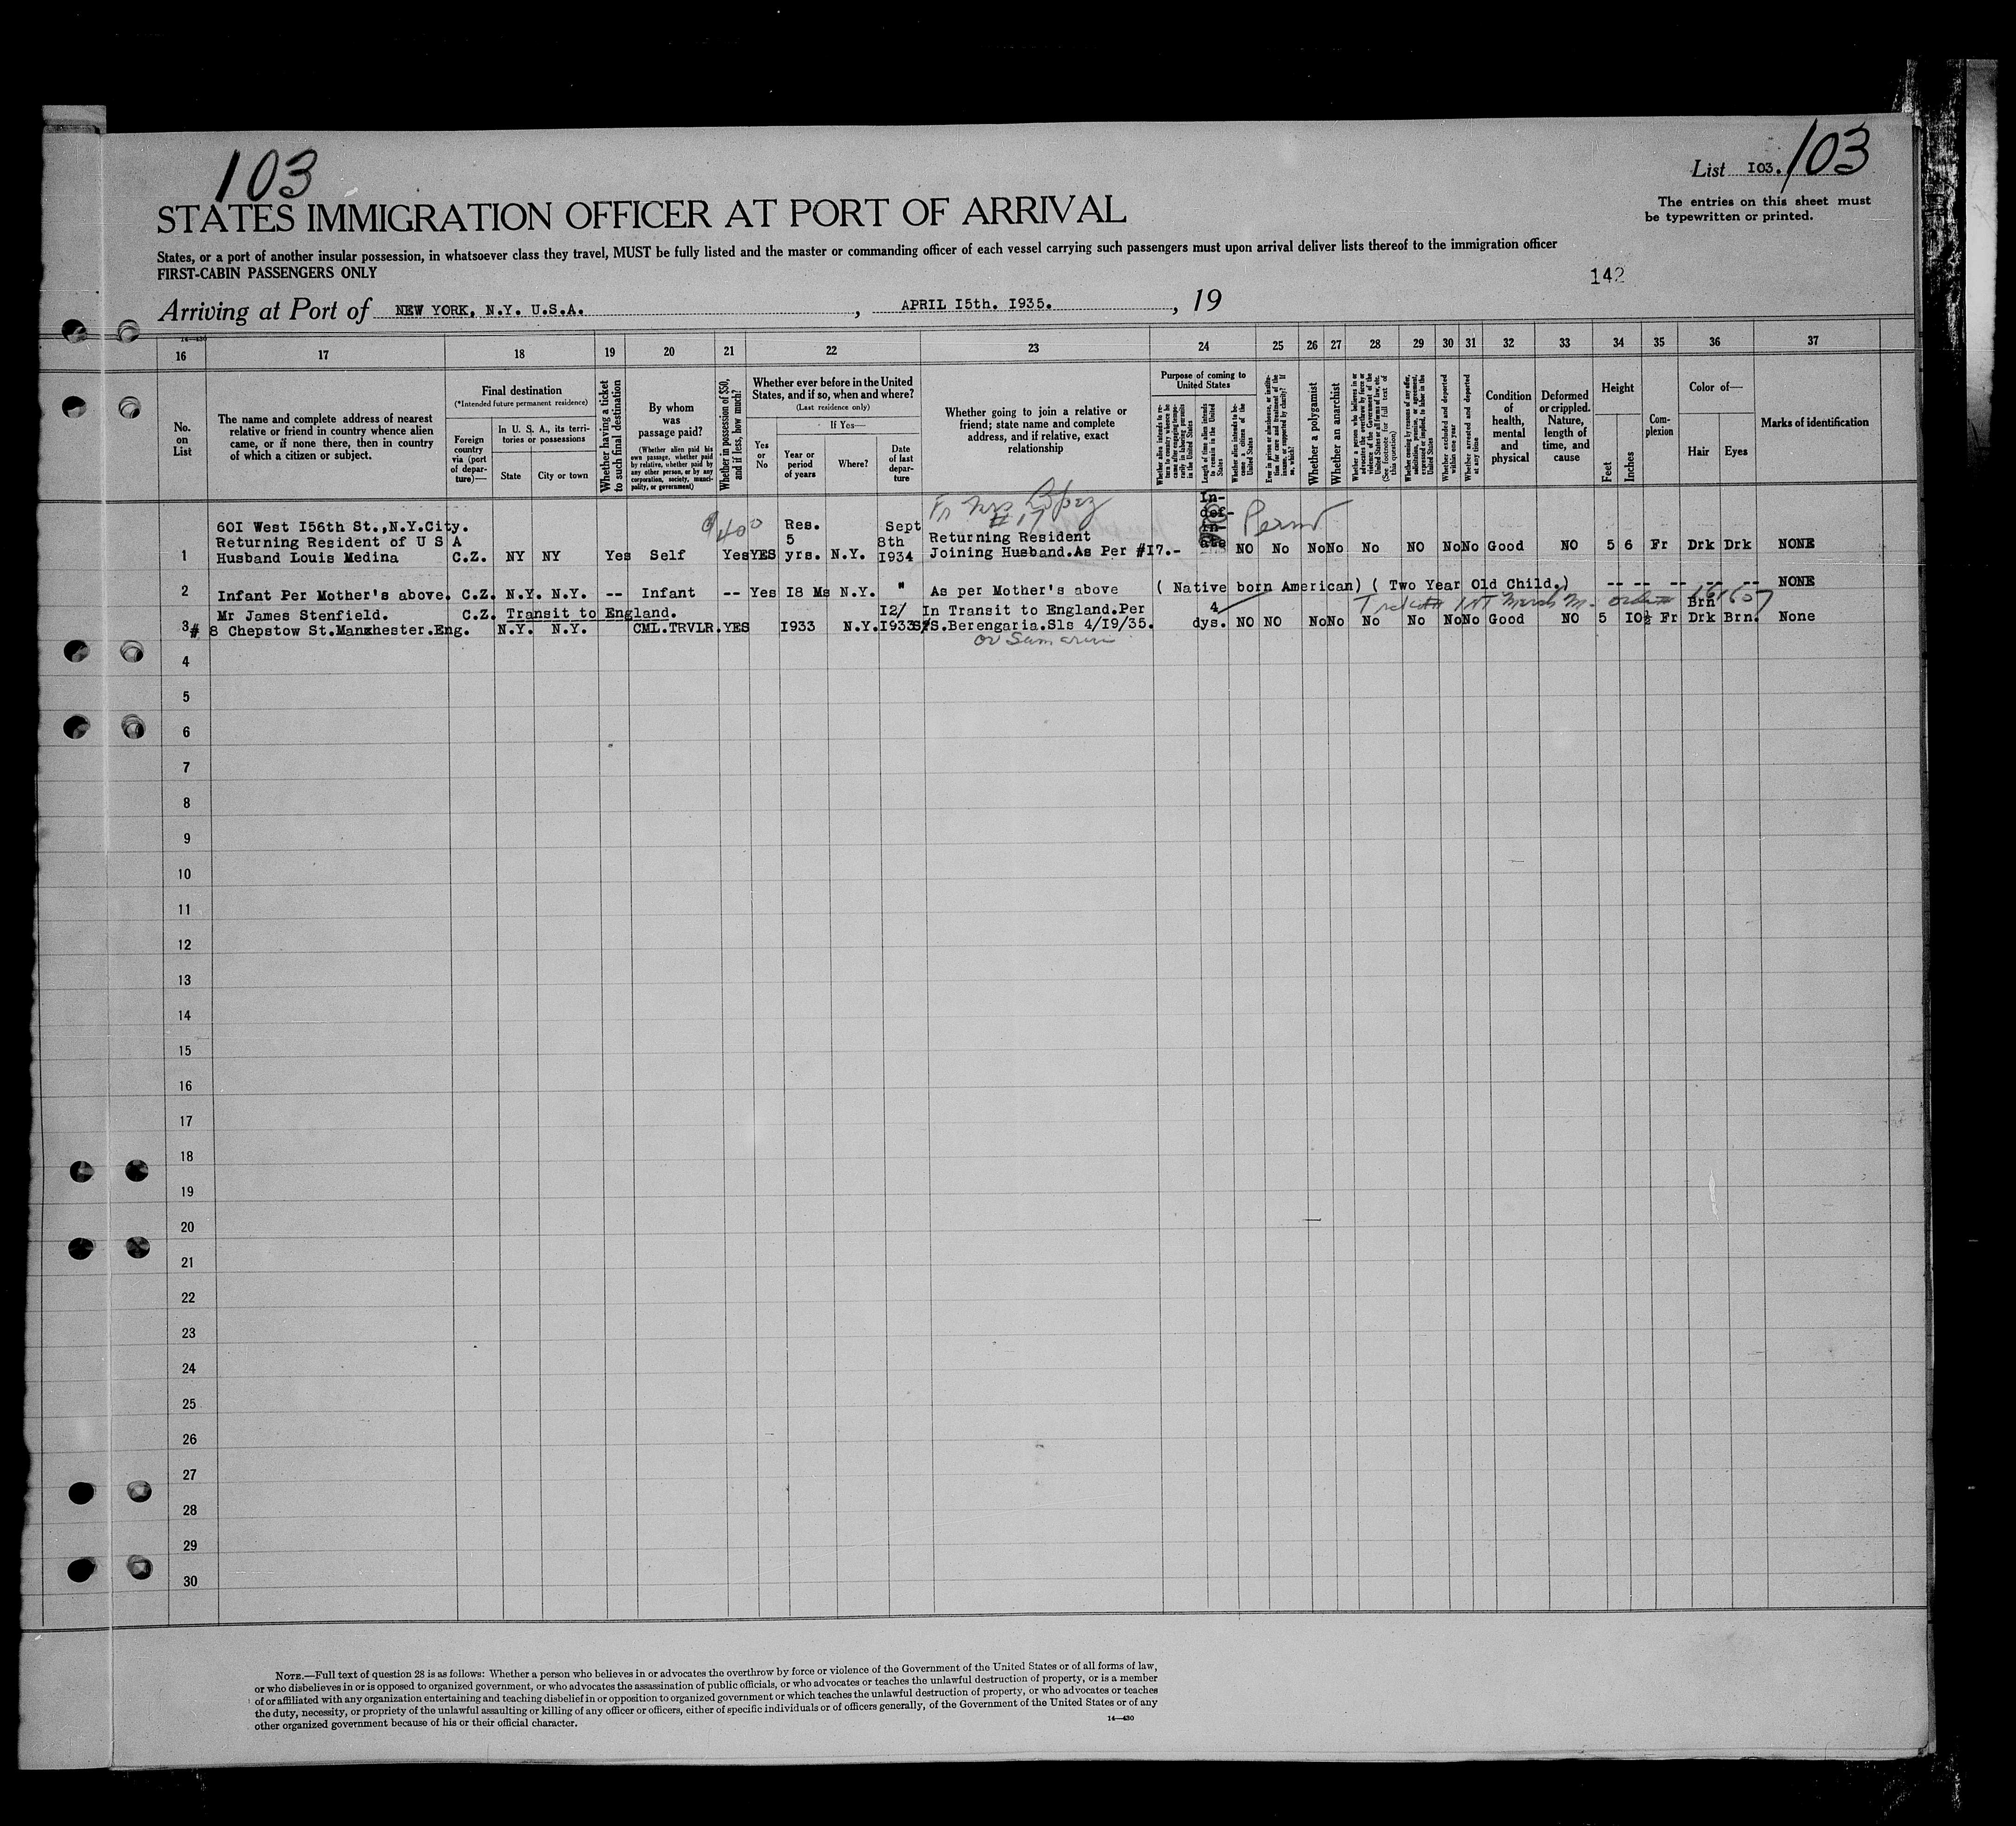 103
List I03. 103
The entries on this sheet must
be typewritten or printed.
STATES IMMIGRATION OFFICER AT PORT OF ARRIVAL
States, or a port of another insular possession, in whatsoever class they travel, MUST be fully listed and the master or commanding officer of each vessel carrying such passengers must upon arrival deliver lists thereof to the immigration officer
FIRST-CABIN PASSENGERS ONLY
142
Arriving at Port of NEW YORK, N.Y. U.S.A. , APRIL I5th. I935. , 19
14—430
16 17 18 19 20 21 22 23 24 25 26 27 28 29 30 31 32 33 34 35 36 37
No.
on
List
The name and complete address of nearest
relative or friend in country whence alien
came, or if none there, then in country
of which a citizen or subject.
Final destination
(*Intended future permanent residence)
Foreign
country
via (port
of depar-
ture)—
In U. S. A., its terri-
tories or possessions
State
City or town
Whether having a ticket
to such final destination
By whom
was
passage paid?
(Whether alien paid his
own passage, whether paid
by relative, whether paid by
any other person, or by any
corporation, society, munici-
pality, or government)
Whether in possession of $50,
and if less, how much?
Whether ever before in the United
States, and if so, when and where?
(Last residence only)
Yes
or
No
If Yes—
Year or
period
of years
Where?
Date
of last
depar-
ture
Whether going to join a relative or
friend; state name and complete
address, and if relative, exact
relationship
Purpose of coming to
United States
Whether alien intends to re-
turn to country whence he
came after engaging tempo-
rarily in laboring pursuits
in the United States
Length of time alien intends
to remain in the United
States
Whether alien intends to be-
come a citizen of the
United States
Ever in prison or almshouse, or institu-
tion for care and treatment of the
insane, or supported by charity? If
so, which?
Whether a polygamist
Whether an anarchist
Whether a person who believes in or
advocates the overthrow by force or
violence of the Government of the
United States or all forms of law, etc.
(See footnote for full text of
this question)
Whether coming by reasons of any offer,
solicitation, promise, or agreement,
expressed or implied, to labor in the
United States
Whether excluded and deported
within one year
Whether arrested and deported
at any time
Condition
of
health,
mental
and
physical
Deformed
or crippled.
Nature,
length of
time, and
cause
Height
Feet
Inches
Com-
plexion
Color of—
Hair
Eyes
Marks of identification
Fr Mrs Lopez
#17
In-
def-
in-
ate
60I West I56th St.,N.Y.City. Res. Sept
Returning Resident of U S A 5 8th Returning Resident
1 Husband Louis Medina C.Z. NY NY Yes Self Yes YES yrs. N.Y. I934 Joining Husband.As Per #I7.- NO No No No No NO No No Good NO 5 6 Fr Drk Drk NONE
2 Infant Per Mother's above. C.Z. N.Y. N.Y. -- Infant -- Yes I8 Ms N.Y. " As per Mother's above ( Native born American) ( Two Year Old Child.) -- -- -- -- -- NONE
Mr James Stenfield. C.Z. Transit to England. I2/ In Transit to England.Per 4 Brn
3# 8 Chepstow St.Manxhester.Eng. N.Y. N.Y. CML.TRVLR. YES I933 N.Y. I933 S/S.Berengaria.Sls 4/I9/35. dys. NO NO No No No No No No Good NO 5 IO½ Fr Drk Brn. None
4
5
6
7
8
9
10
11
12
13
14
15
16
17
18
19
20
21
22
23
24
25
26
27
28
29
30
NOTE.—Full text of question 28 is as follows: Whether a person who believes in or advocates the overthrow by force or violence of the Government of the United States or of all forms of law,
or who disbelieves in or is opposed to organized government, or who advocates the assassination of public officials, or who advocates or teaches the unlawful destruction of property, or is a member
of or affiliated with any organization entertaining and teaching disbelief in or opposition to organized government or which teaches the unlawful destruction of property, or who advocates or teaches
the duty, necessity, or propriety of the unlawful assaulting or killing of any officer or officers, either of specific individuals or of officers generally, of the Government of the United States or of any
other organized government because of his or their official character.
14—430